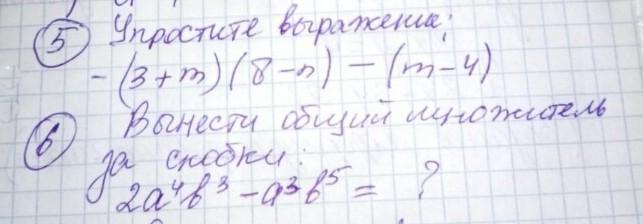 5 Упростите выражение:
-(3+m)(8-n)-(m-4)
6 Вынести общий множитель
за скобки:
2a⁴b³-a³b⁵= ?